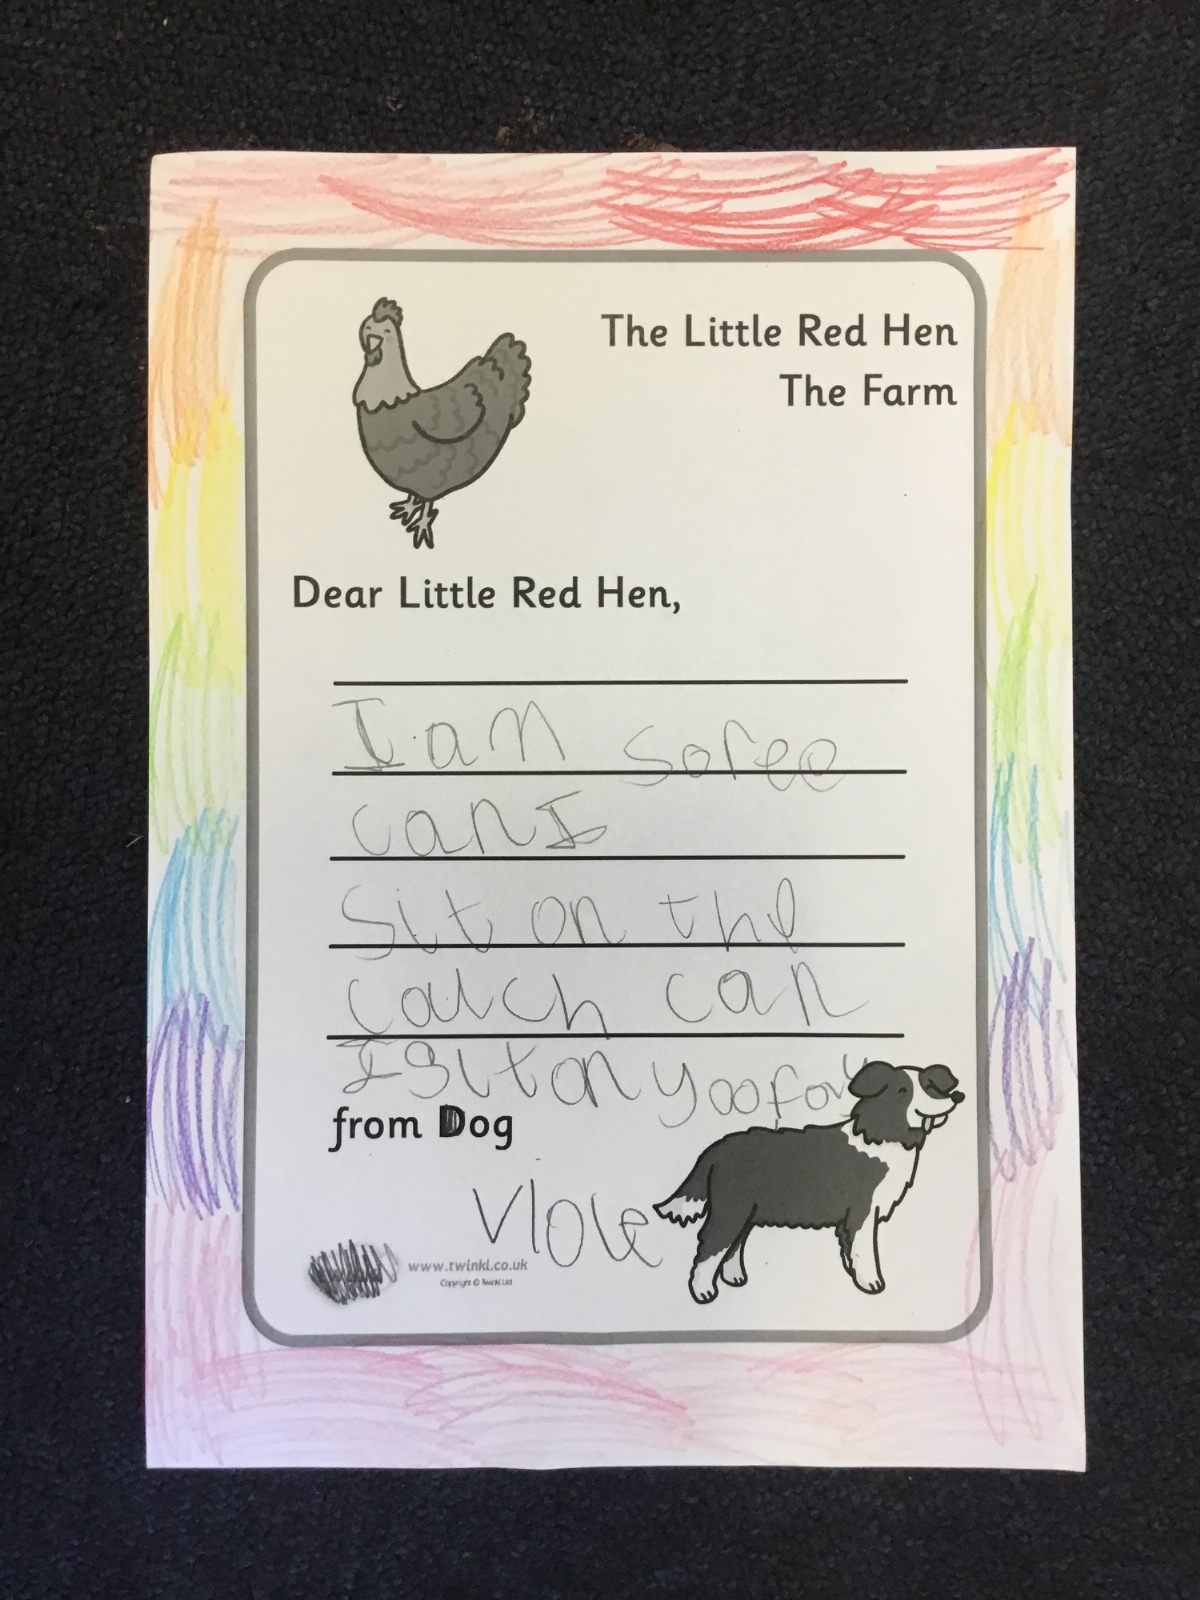 The Little Red Hen
The Farm
Dear Little Red Hen,
I am soree
can I
sit on the
cauch can
I sit on yoo
from Dog
www.twinkl.co.uk
Copyright © Twinkl Ltd